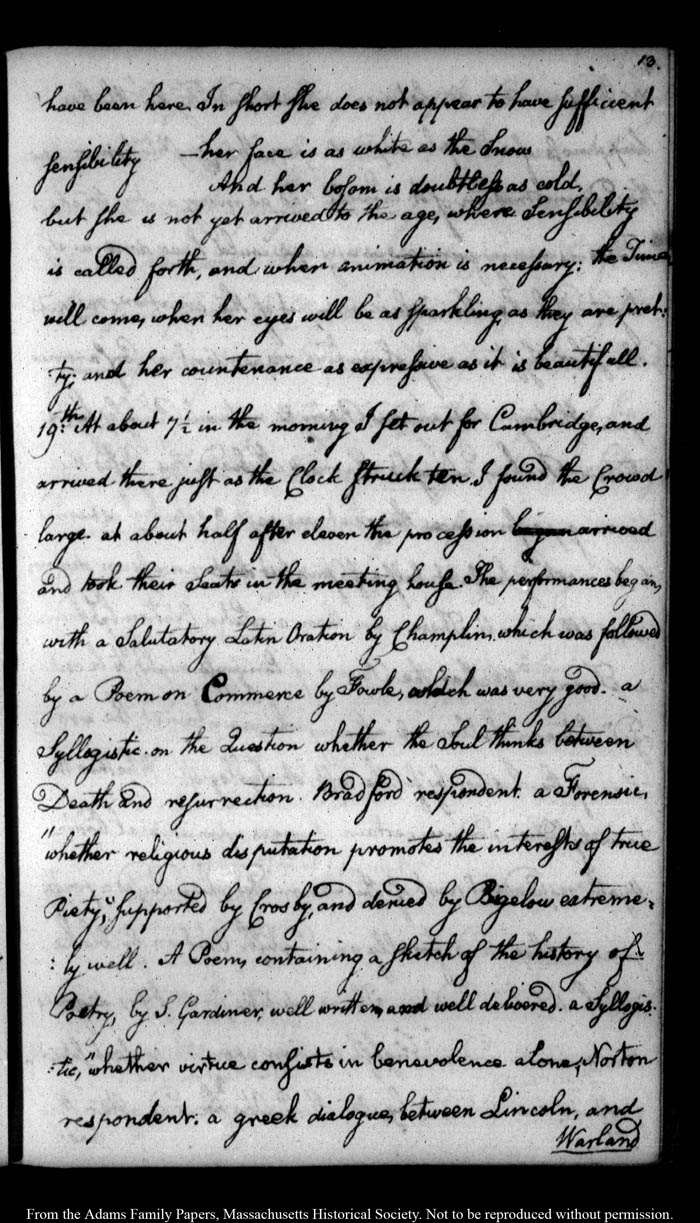 13.
have been here. In short she does not appear to have sufficient
sensibility — her face is as white as the Snow
And her bosom is doubtless as cold.
but she is not yet arrived to the age, where Sensibility
is called forth, and when animation is necessary: the Time
will come, when her eyes will be as sparkling, as they are pret:
ty; and her countenance as expressive as it is beautifull.
19:th At about 7½ in the morning I set out for Cambridge, and
arrived there just as the Clock struck ten. I found the Crowd
large. at about half after eleven the procession began arrived
and took their Seats in the meeting house. The performances began,
with a Salutatory Latin Oration by Champlin, which was followed
by a Poem on Commerce by Fowle, which was very good. a
Syllogistic. on the Question whether the Soul thinks between
Death and resurrection. Bradford respondent. a Forensic,
"whether religious disputation promotes the interests of true
Piety," supported by Crosby, and denied by Bigelow extreme:
:ly well. A Poem, containing a sketch of the history of
Poetry, by S. Gardiner, well written, and well delivered. a Syllogis:
:tic, "whether virtue consists in benevolence alone, Norton
respondent: a greek dialogue, between Lincoln, and
Warland
From the Adams Family Papers, Massachusetts Historical Society. Not to be reproduced without permission.